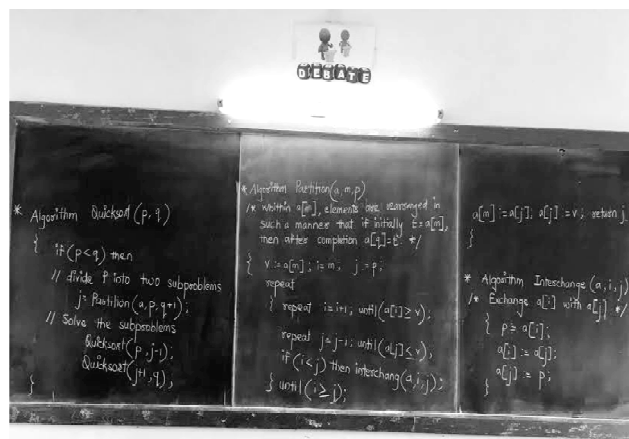 DEBATE
* Algorithm Quicksort (p, q)
{
if (p < q) then
// divide P into two subproblems
j = Partition (a, p, q+1);
// Solve the subproblems
Quicksort (p, j-1);
Quicksort (j+1, q);
}
* Algorithm Partition (a, m, p)
/* Within a[m], elements are rearranged in
such a manner that if initially t = a[m],
then after completion a[q] = t */
{ v := a[m]; i = m; j = p;
repeat
{ repeat i = i+1; until (a[i] ≥ v);
repeat j = j-1; until (a[j] ≤ v);
if (i < j) then interchang (a, i, j);
} until (i ≥ j);
a[m] := a[j]; a[j] := v; return j
}
* Algorithm Interchange (a, i, j)
/* Exchange a[i] with a[j] */
{ p = a[i];
a[i] := a[j];
a[j] := p;
}